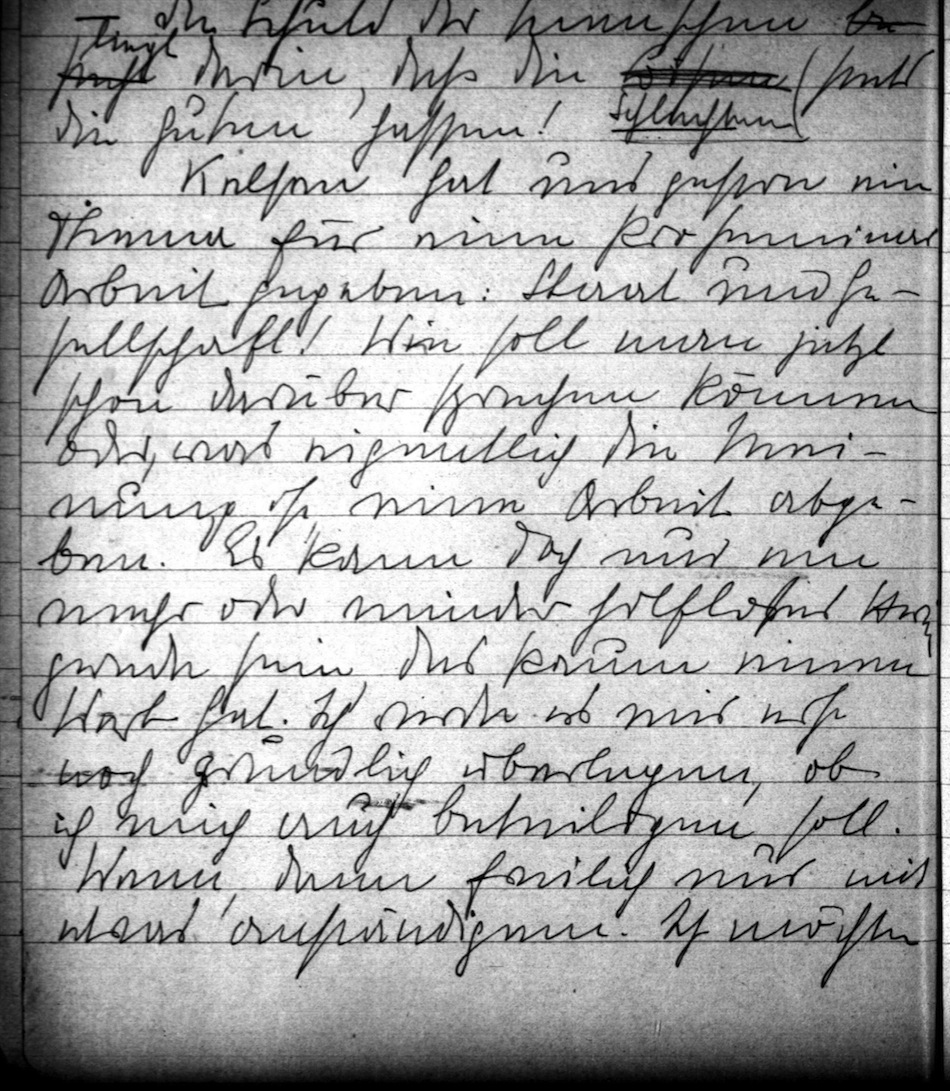 die Schuld der Menschen be-
liegt
steht darin, daß die Bösen stets
die Guten hassen! Schlechten
Kelsen hat uns gestern ein
Thema für eine Proseminar
Arbeit gegeben: Staat und Ge-
sellschaft! Wie soll man jetzt
schon darüber sprechen können
oder, was eigentlich die Mei-
nung ist eine Arbeit abge-
ben. Es kann doch nur ein
mehr oder minder hilfloses Her-
gerede sein das kaum einen
Wert hat. Ich werde es mir erst
noch gründlich überlegen, ob
ich mich auch beteiligen soll.
Wenn, dann freilich nur mit
etwas anständigem. Ich möchte